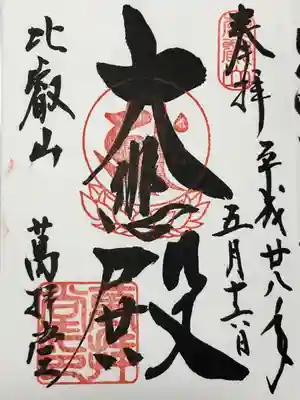 奉拝 平成廿八年
五月十六日
大悲殿
比叡山
萬拝堂